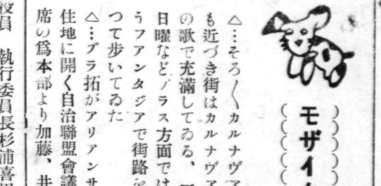 モザイ
△…そろ〳〵カルナヴア
も近づき街はカルナヴア
の歌で充満してゐる、一
日曜などブラス方面では
うフアンタジアで街路を
つて歩いてゐた
△…ブラ拓がアリアンサ
住地に開く自治聯盟會議
席の爲本部より加藤、井
役員 執行委員長杉浦喜